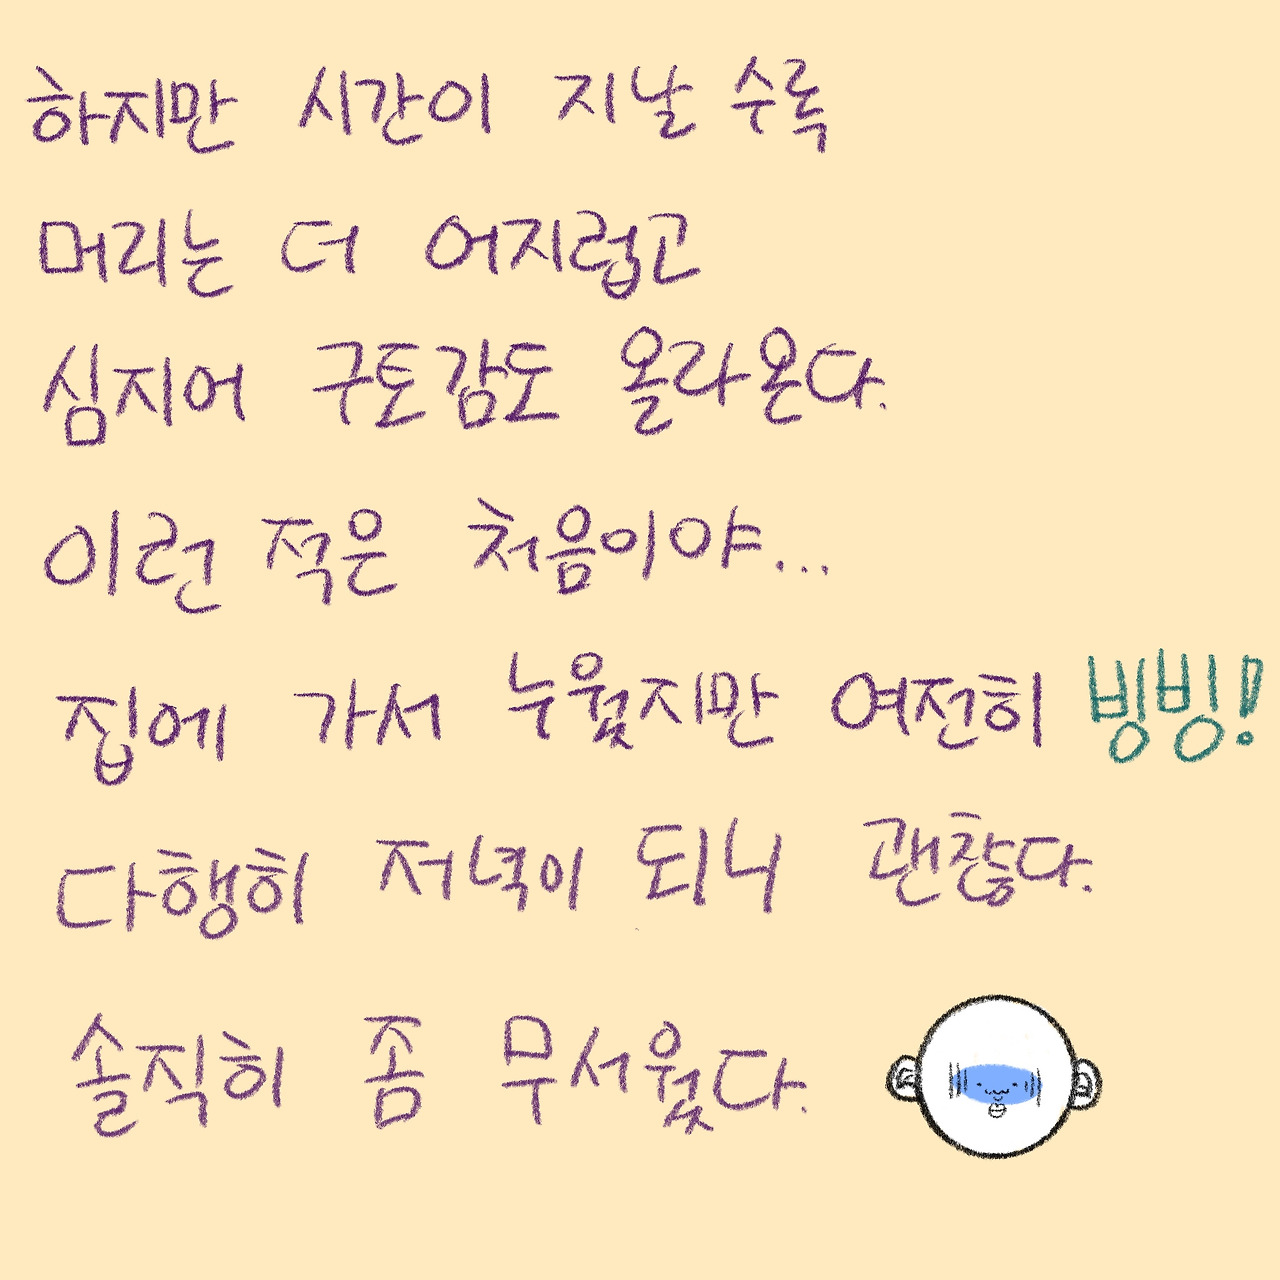 하지만 시간이 지날 수록
머리는 더 어지럽고
심지어 구토감도 올라온다.
이런 적은 처음이야...
집에 가서 누웠지만 여전히 빙빙!
다행히 저녁이 되니 괜찮다.
솔직히 좀 무서웠다.